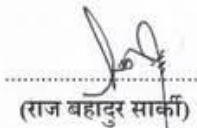 (राज बहादुर सार्की)